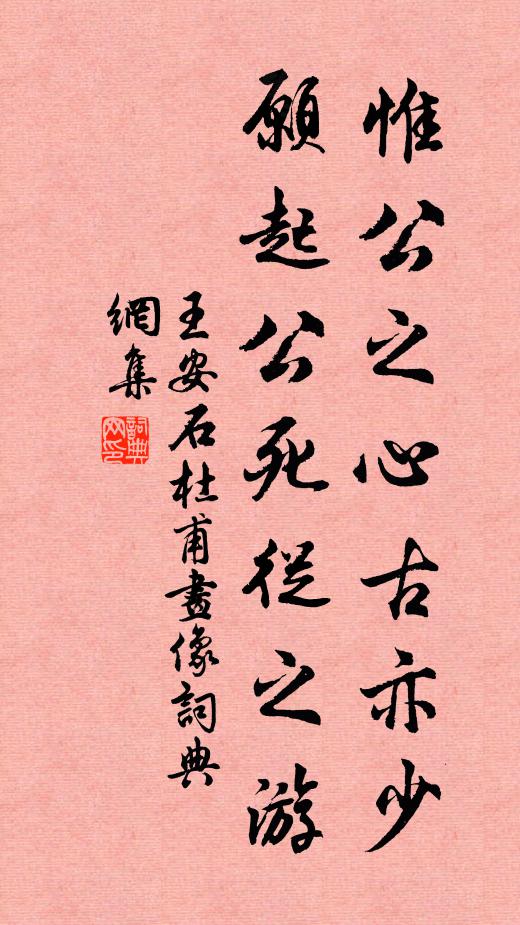 惟公之心古亦少
願起公死從之游
王安石杜甫畫像詞典
網集
詞典網印